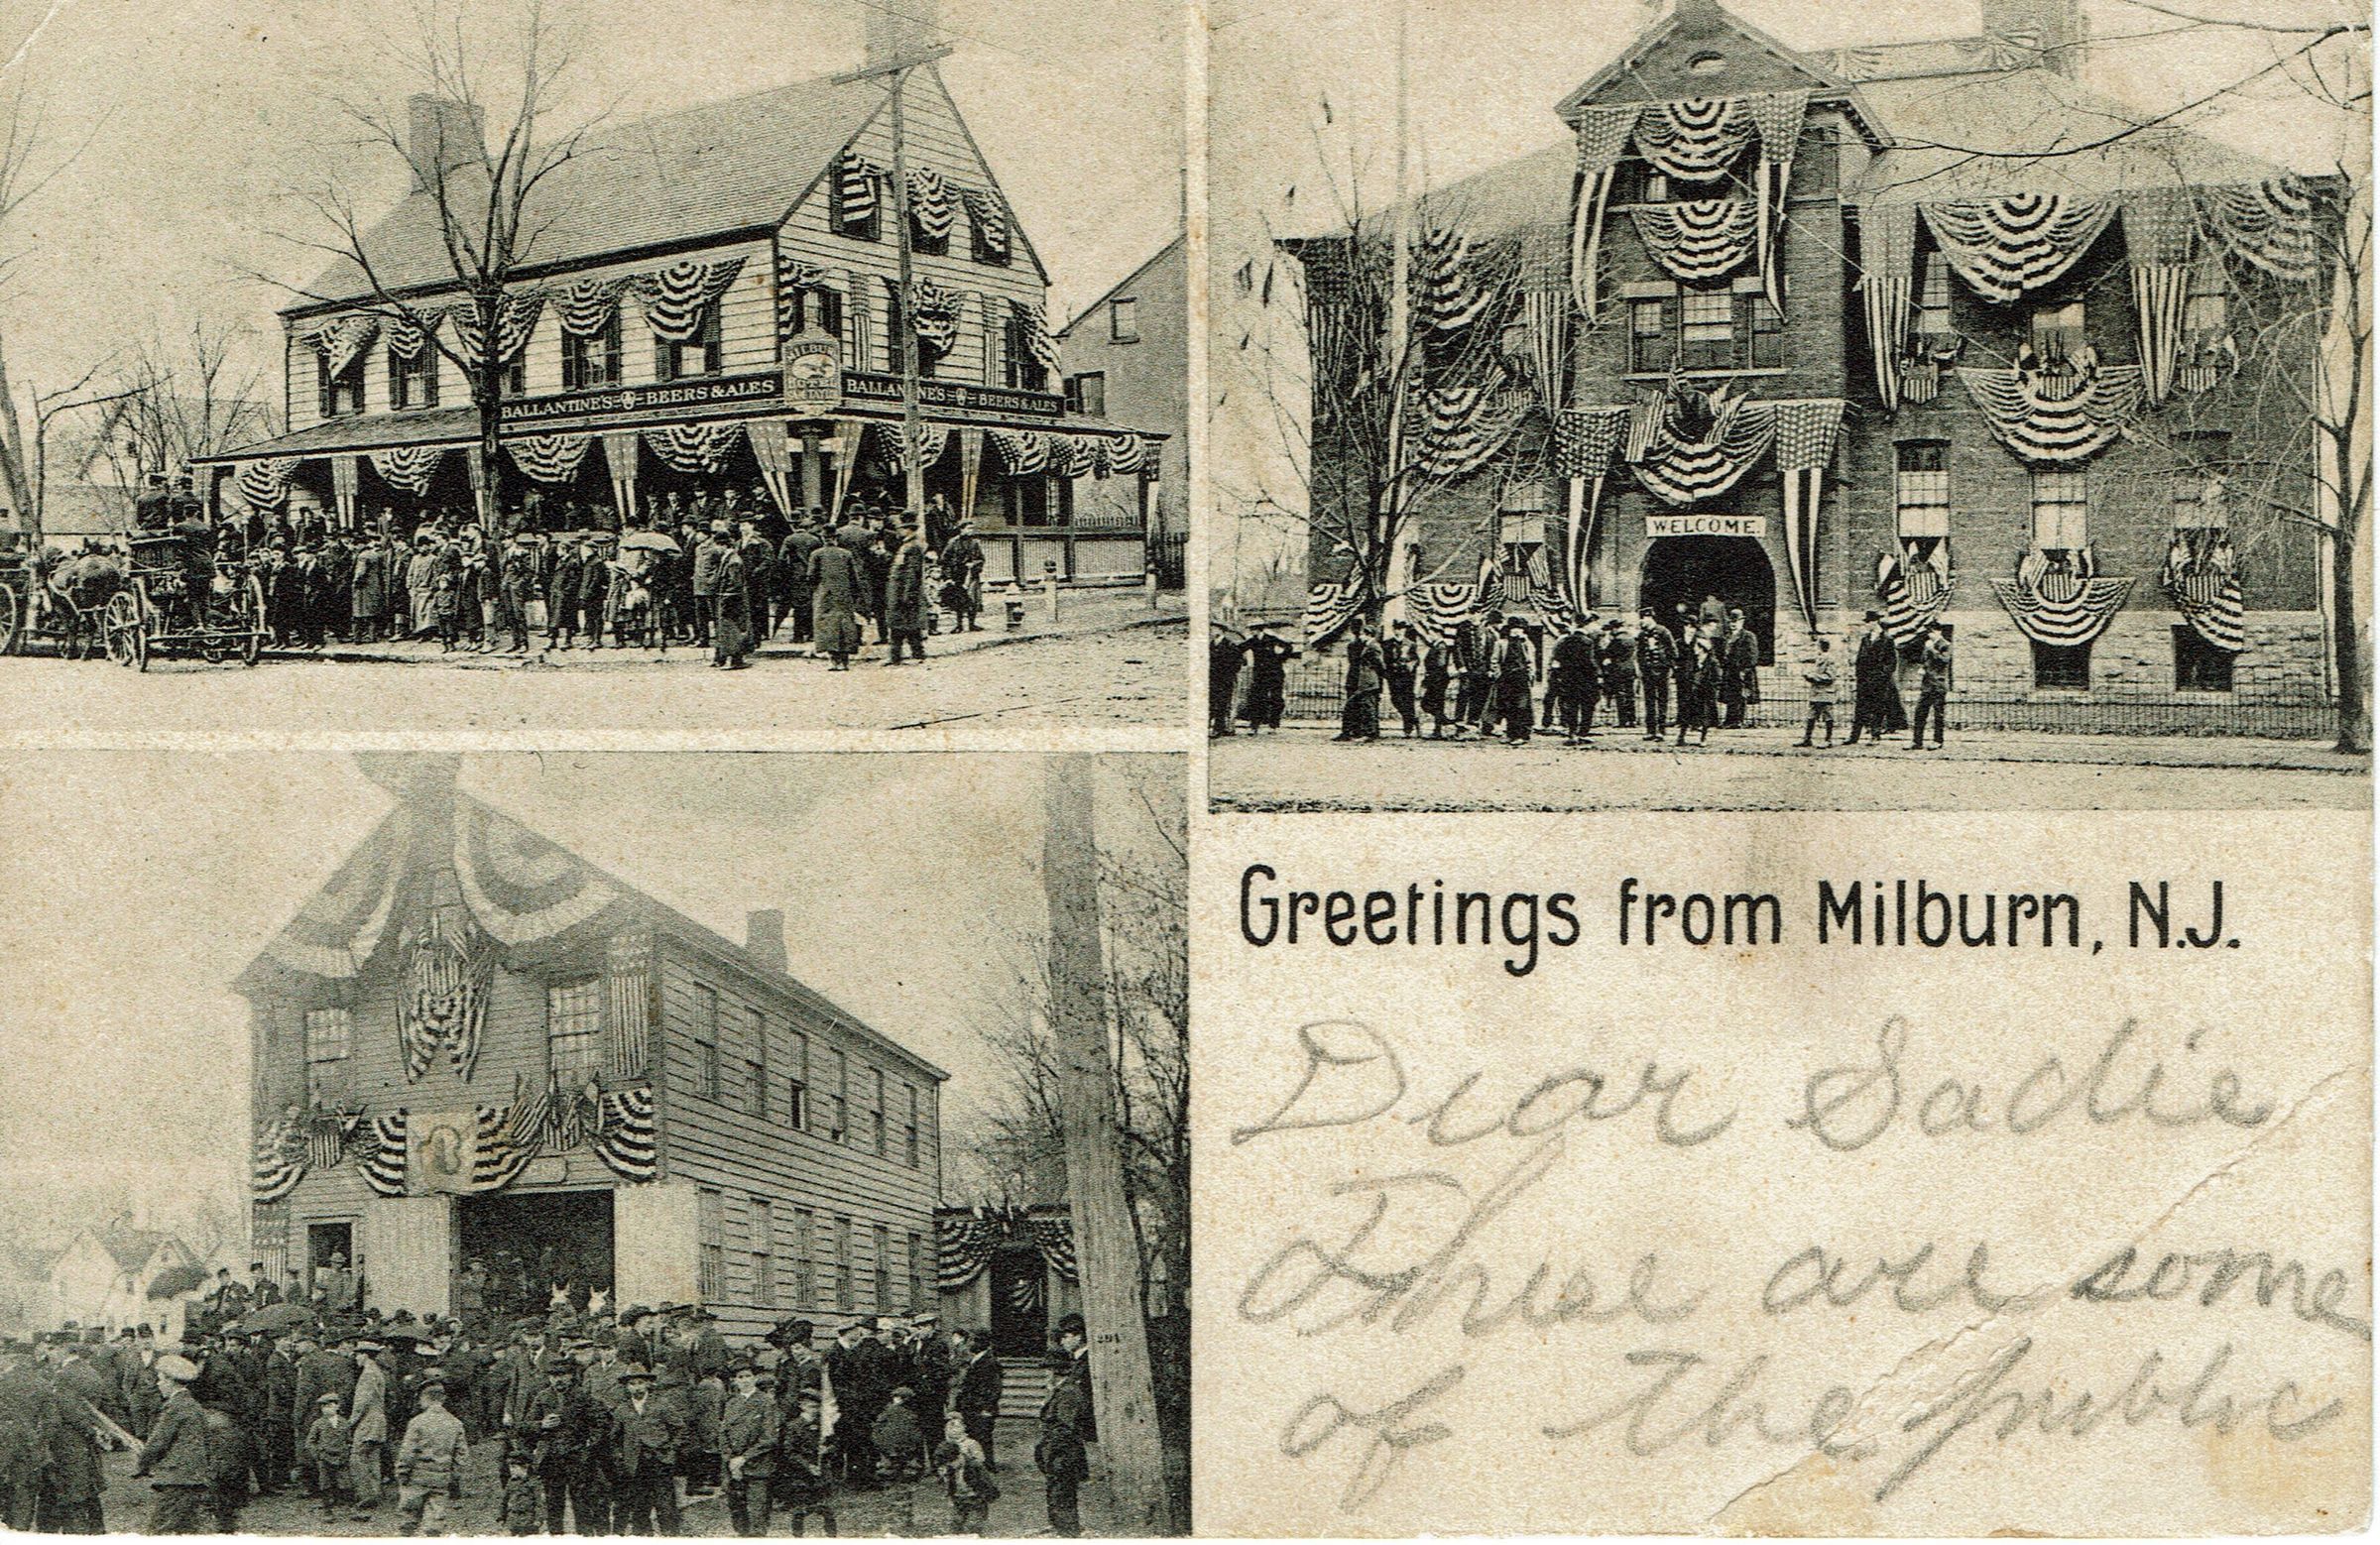 BALLANTINE'S BEERS & ALES
HOTEL
BALLANTINE'S BEERS & ALES
WELCOME
291
Greetings from Milburn, N.J.
Dear Sadie
These are some
of the public